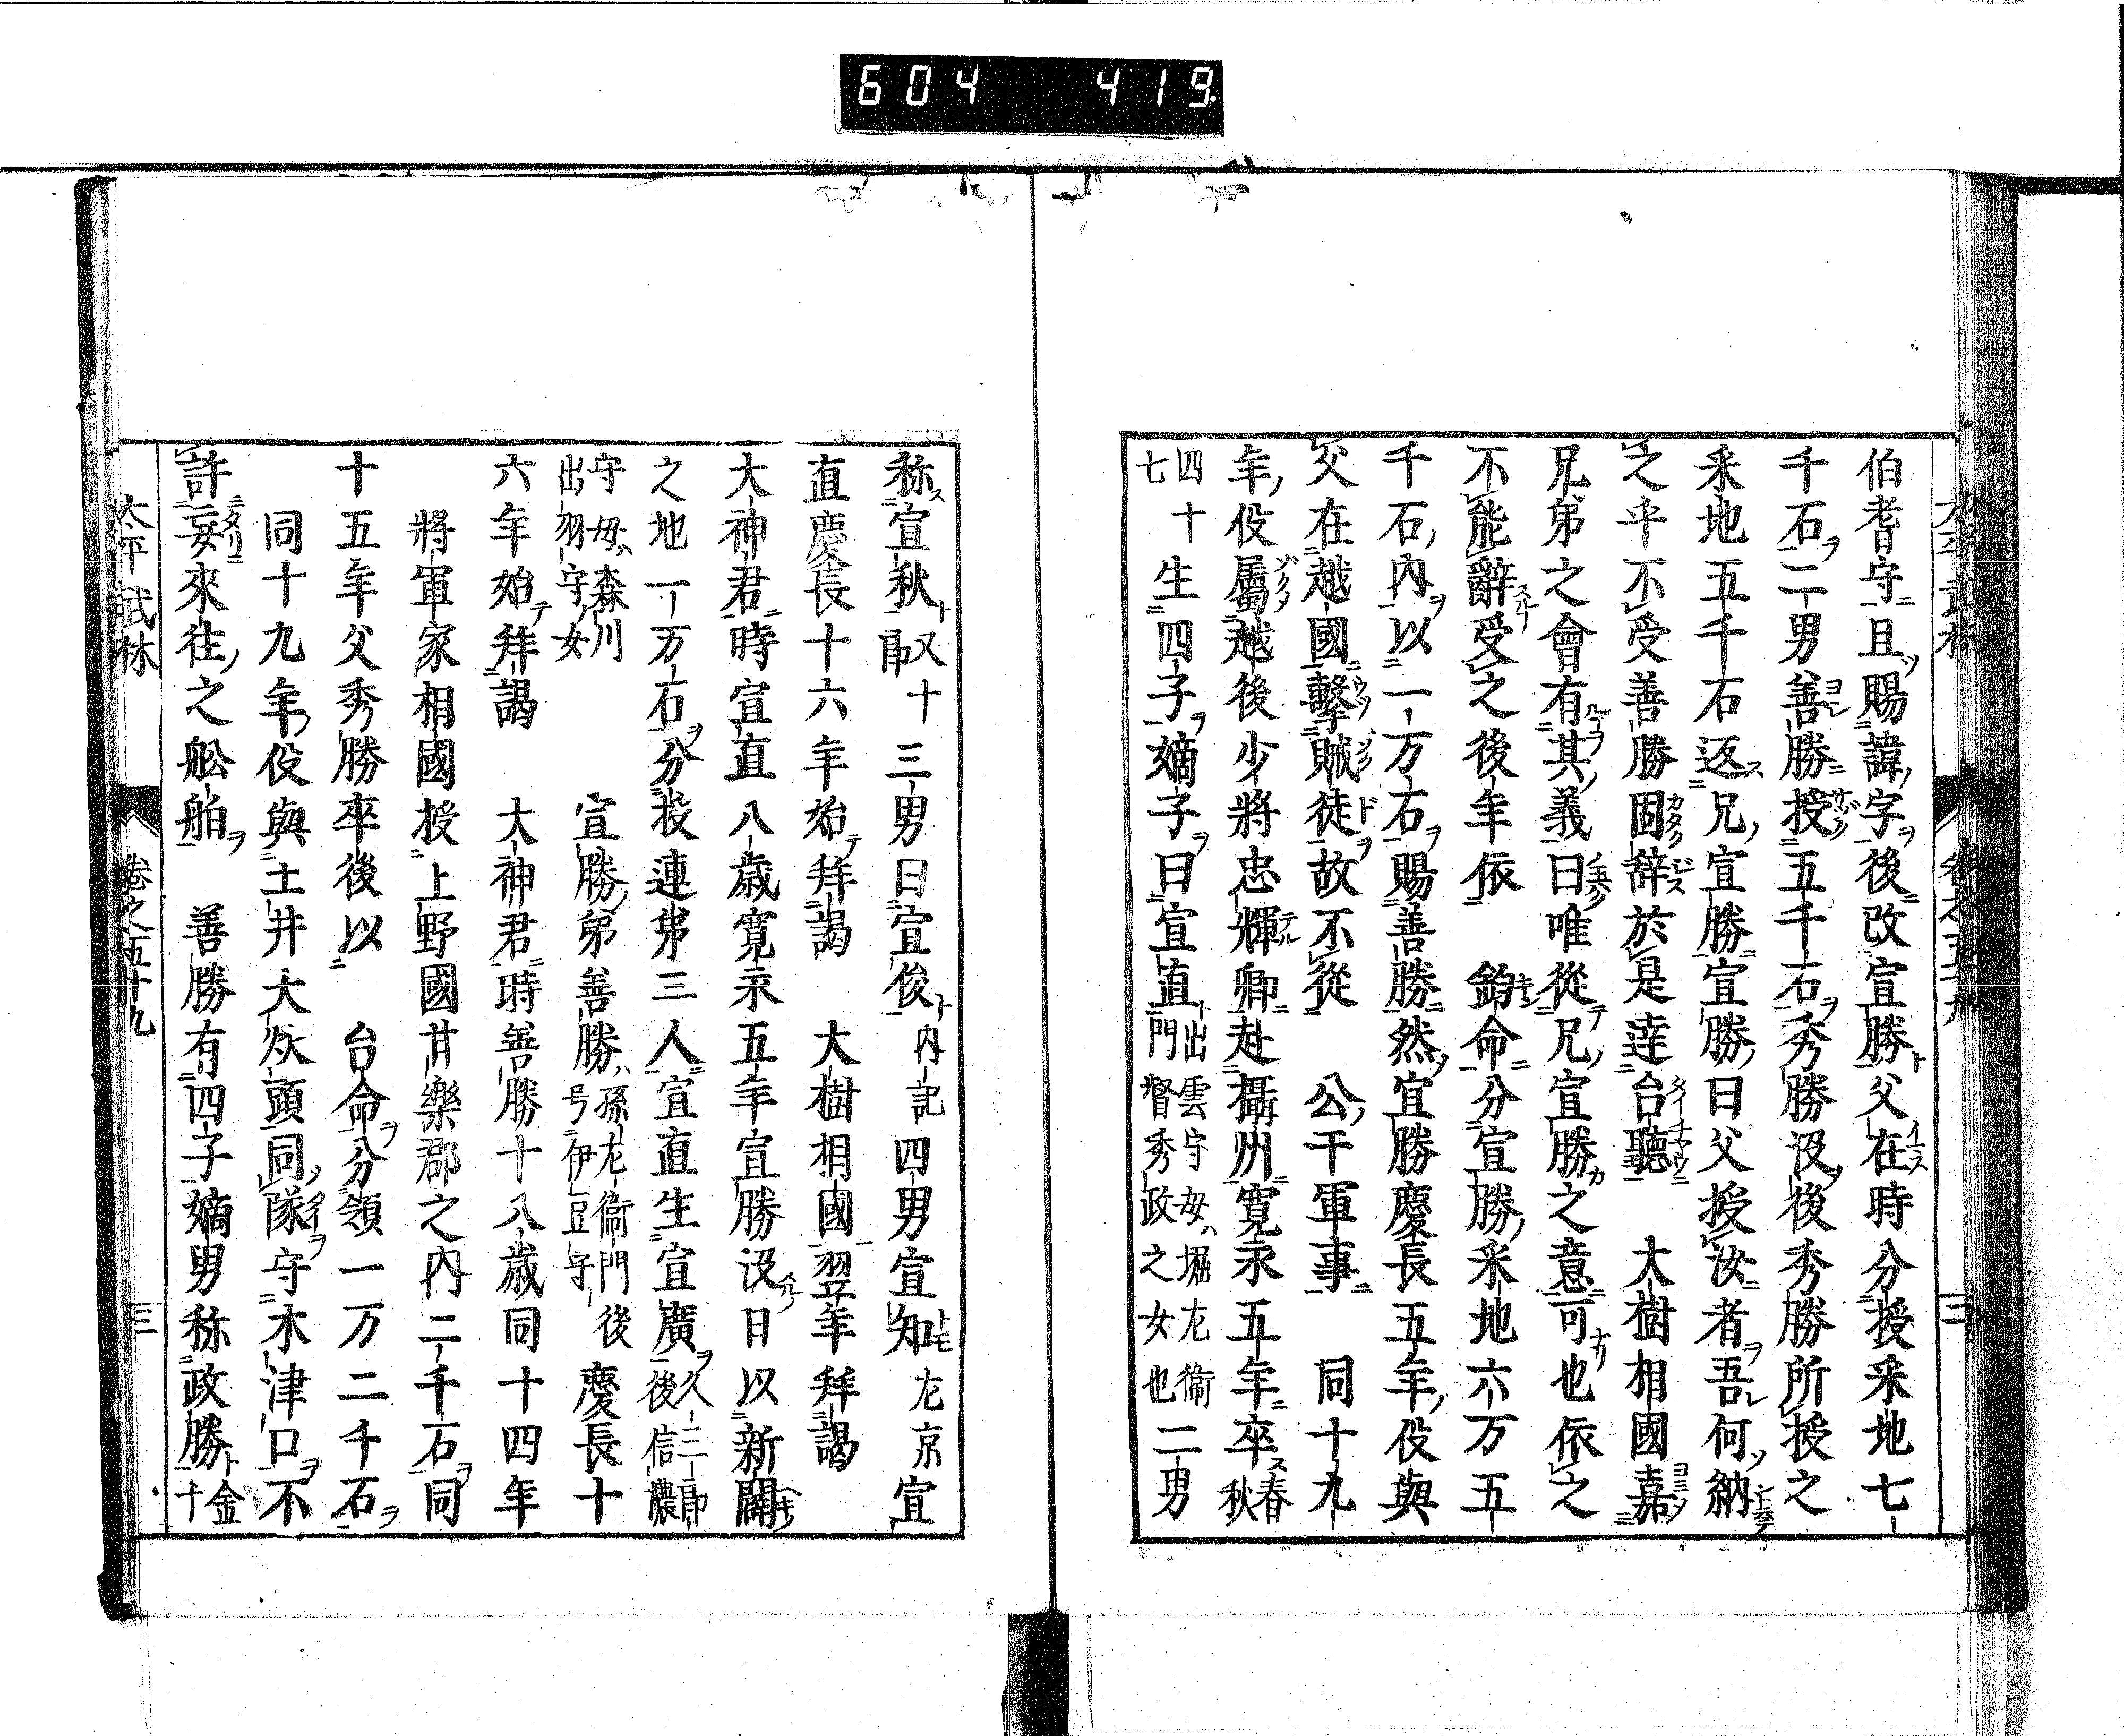 604 419
伯耆守且賜諱字後改宣勝父在時分授釆地七
千石二男善勝授五千石秀勝没後秀勝所授之
釆地五千石返兄宣勝宣勝曰父授汝者吾何納
之乎不受善勝固辞於是達台聽 大樹相國嘉
兄弟之會有其義曰唯從兄宣勝之意可也依之
不能辭受之後年依 鈞命分宣勝釆地六万五
千石内以一万石賜善勝然宣勝慶長五年役與
父在越國擊賊徒故不從 公干軍事 同十九
年役屬越後少將忠輝卿赴攝州寛永五年卒春秋
四十七生四子嫡子曰宣直出雲守母堀左衞門督秀政之女也二男
称宣秋又郎十三男曰宣俊内記四男宣知左京宣
直慶長十六年始拜謁 大樹相國翌年拜謁
大神君時宣直八歳寛永五年宣勝没日以新闢
之地一万石分授連弟三人宣直生宣廣久三郎後信濃
守母森川出羽守女 宣勝弟善勝孫左衞門後号伊豆守 慶長十
六年始拜謁 大神君時善勝十八歳同十四年
將軍家相國授上野國甘樂郡之内二千石同
十五年父秀勝卒後以 台命分領一万二千石
同十九年役與土井大炊頭同隊守木津口不
許妄來往之舩舶 善勝有四子嫡男称政勝金十
太平武林 卷之五十九 三